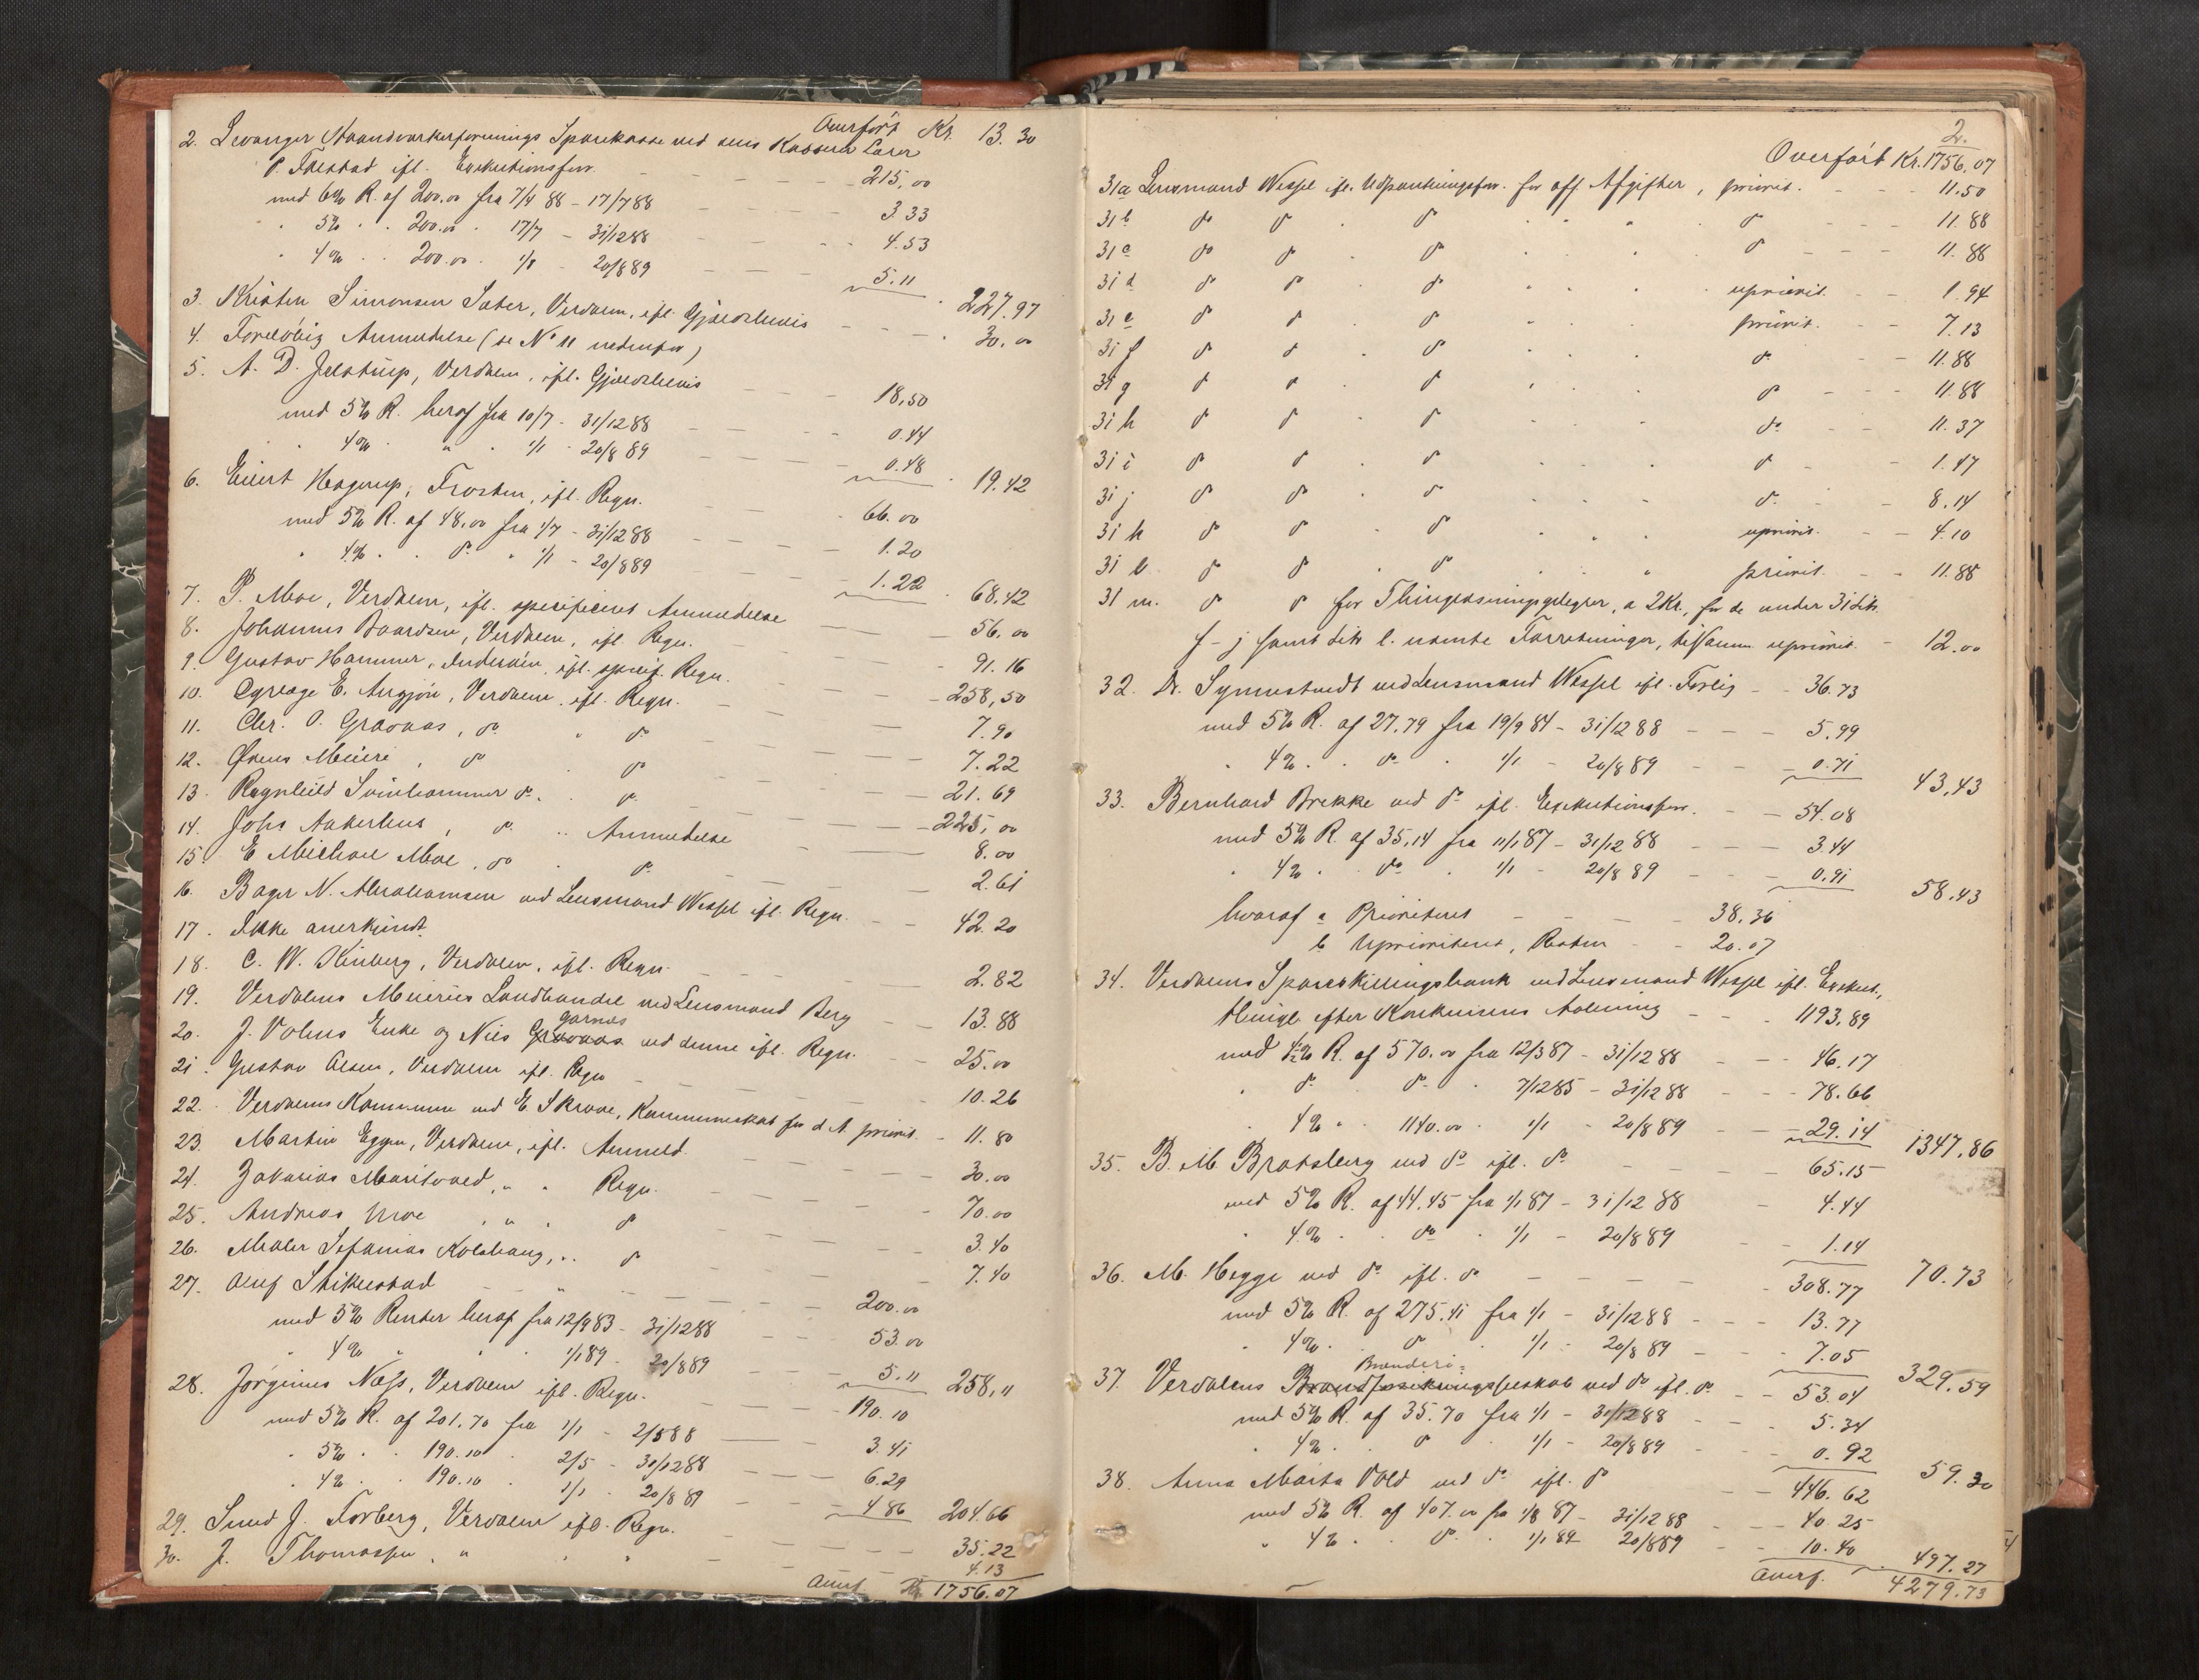 Overført Kr. 13.30
2. Levanger Haandværkerforenings Sparekasse ved dens Kasserer Lærer
P. Tvestad ifl. Exekutionsforr. 215,00
med 6% R. af 200.00 fra 7/4 88 - 17/7 88 3.33
" 5% " " 200.00 " 17/7 - 31/12 88 4.53
" 4% " " 200.00 " 1/1 - 20/8 89 5.11 227.97
3. Kristen Simonsen Sæter, Verdalen, ifl. Gjældsbevis 30.00
4. Foreløbig Anmeldelse (se No 11 nedenfor)
5. A. D. Jelstrup, Verdalen, ifl. Gjældsbevis 18,50
med 5% R. heraf fra 10/7 - 31/12 88 0.44
" 4% " " " 1/1 - 20/8 89 0.48 19.42
6. Eilert Hagerup, Frosten, ifl. Regn. 66.00
med 5% R. af 48,00 fra 1/7 - 31/12 88 1.20
" 4% " " do " 1/1 - 20/8 89 1.22 68.42
7. P. Moe, Verdalen, ifl. specificeret Anmeldelse 56.00
8. Johannes Baardsen, Verdalen, ifl. Regn. 91.16
9. Gustav Hammer, Inderøen, ifl. specif. Regn. 258,50
10. Sagfører E. Angjøn, Verdalen, ifl. Regn. 7.90
11. Chr. O. Graanas, do " do 7.22
12. Ørens Meieri, do " do 21.69
13. Ragnhild Svinhammer do " do 225,00
14. Johs Aakerhus, do " Anmeldelse 8.00
15. E Michael Moe, do " do 2.61
16. Bager N. Abrahamsen ved Lensmand Wessel ifl. Regn. 42.20
17. Ikke anerkjendt.
18. C. W. Kinberg, Verdalen, ifl. Regn. 2.82
19. Verdalens Meieries Landhandel ved Lensmand Berg 13.88
garnes
20. J. Volens Enke og Nils Graanas ved denne ifl. Regn. 25.00
21. Gustav Olsen, Verdalen ifl. Regn 10.26
22. Verdalens Kommune ved E. Skrove, Kommuneskat for d. A. priorit. 11.80
23. Martin Eggen, Verdalen, ifl. Anmeld. 30.00
24. Zakarias Maritvold, " " Regn. 70.00
25. Andreas Moe " " " do 3.40
26. Maler Sefanias Kolshaug, " " do 7.40
27. Oluf Stiklestad " 200.00
med 5% Renter heraf fra 12/9 83 - 31/12 88 53.00
" 4% " " 1/1 89 - 20/8 89 5.11 258,11
28. Jørginus Næss, Verdalen ifl. Regn. 190.10
med 5% R. af 201.70 fra 1/1 - 2/5 88 3.41
" 5% " " 190.10 " 2/5 - 31/12 88 6.29
" 4% " " 190.10 " 1/1 - 20/8 89 4.86 204.66
29. Svend J. Forberg, Verdalen ifl. Regn. 35.22
30. J. Thomassen, " " " 4.13
Overf. Kr 1756.07
2.
Overført Kr. 1756.07
31a Lensmand Wessel ifl. Udpantningsforr. for off. Afgifter, priorit. 11.50
31 b do do " do " " " do 11.88
31 c do do " do " " " do 11.88
31 d do do " do " " " upriorit. 1.94
31 e do do " do " " " priorit. 7.13
31 f do do " do " " " do 11.88
31 g do do " do " " " do 11.88
31 h do do " do " " " do 11.37
31 i do do " do " " " do 1.47
31 j do do " do " " " do 8.14
31 k do do " do " " " upriorit. 4.10
31 l do do " do " " " priorit. 11.88
31 m. do do for Thinglæsningsgebyrer, a 2 Kr, for de under 31 Litr.
f - j samt Litr l. nævnte Forretninger, tilsamm. upriorit. 12.00
32. Dr. Synnestvedt ved Lensmand Wessel ifl. Forlig 36.73
med 5% R. af 27.79 fra 19/9 84 - 31/12 88 5.99
" 4% " " do " 1/1 - 20/8 89 0.71 43,43
33. Bernhard Brekke ved do ifl. Exekutionsforr. 54.08
med 5% R. af 35,14 fra 11/1 87 - 31/12 88 3.44
" 4% " " do " 1/1 - 20/8 89 0.91 58.43
hvoraf a Prioriteret 38.36
b Uprioriteret, Resten 20.07
34. Verdalens Spareskillingsbank ved Lensmand Wessel ifl. Exekut.,
tilkuigt efter Konkursens Aabning 1193,89
med 4½% R. af 570.00 fra 12/3 87 - 31/12 88 46.17
" do " do " 7/12 85 - 31/12 88 78.66
" 4% " 1140.00 " 1/1 - 20/8 89 29.14 1347.86
35. B. M. Bratsberg ved do ifl. do 65.15
med 5% R. af 44.45 fra 1/1 87 - 31/12 88 4.44
" 4% " " do " 1/1 - 20/8 89 1.14 70.73
36. M. Hegge ved do ifl. do 308.77
med 5% R. af 275.41 fra 1/1 - 31/12 88 13.77
" 4% " do 1/1 - 20/8 89 7.05 329.59
Brænderi=
37. Verdalens Brandforsikringsselskab ved do ifl. do 53.04
med 5% R. af 35.70 fra 1/1 - 31/12 88 5.34
" 4% " do " 1/1 - 20/8 89 0.92 59.30
38. Anna Marta Vold ved do ifl. do 446.62
med 5% R. af 407.00 fra 1/8 87 - 31/12 88 40.25
" 4% " do " 1/1 89 20/8 89 10.40 497.27
Overf. 4279.73